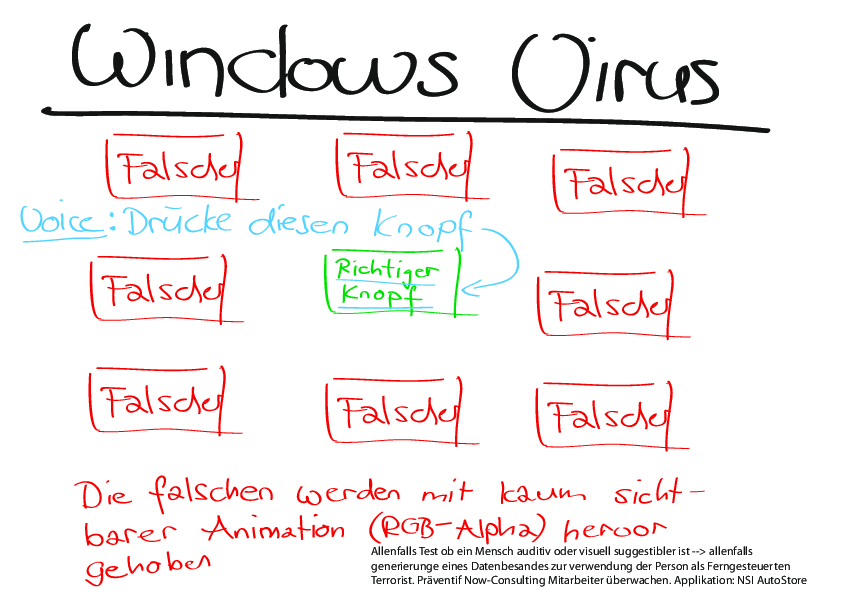 Windows Virus
Falscher Falscher Falscher
Voice: Drücke diesen Knopf
Falscher Richtiger Knopf Falscher
Falscher Falscher Falscher
Die falschen werden mit kaum sicht-
barer Animation (RGB-Alpha) hervor
gehoben
Allenfalls Test ob ein Mensch auditiv oder visuell suggestibler ist --> allenfalls
generierunge eines Datenbesandes zur verwendung der Person als Ferngesteuerten
Terrorist. Präventif Now-Consulting Mitarbeiter überwachen. Applikation: NSI AutoStore